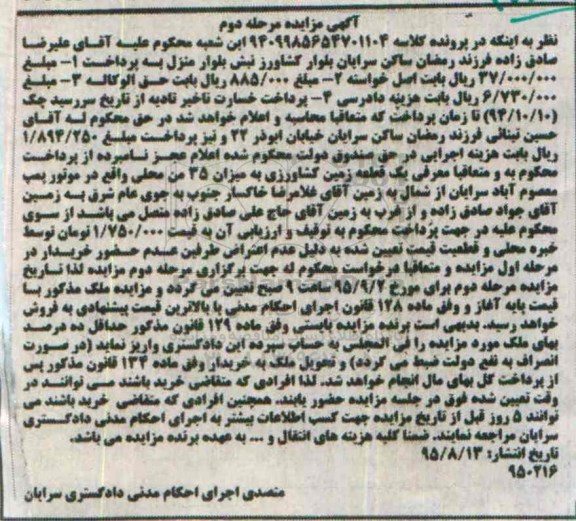 آگهی مزایده مرحله دوم
نظر به اینکه در پرونده کلاسه ۹۴۰۹۹۸۵۶۵۴۷۰۱۱۰۴ این شعبه محکوم علیه آقای علیرضا
صادق زاده فرزند رمضان ساکن سرایان بلوار کشاورز نبش بلوار منزل به پرداخت ۱- مبلغ
۳۷/۰۰۰/۰۰۰ ریال بابت اصل خواسته ۲- مبلغ ۸۸۵/۰۰۰ ریال بابت حق الوکاله ۳- مبلغ
۶/۷۳۰/۰۰۰ ریال بابت هزینه دادرسی ۴- پرداخت خسارت تاخیر تادیه از تاریخ سررسید چک
(۹۴/۱۰/۱۰) تا زمان پرداخت که متعاقبا محاسبه و اعلام خواهد شد در حق محکوم له آقای
حسین نینائی فرزند رمضان ساکن سرایان خیابان ابوذر ۲۲ و نیز پرداخت مبلغ ۱/۸۹۴/۲۵۰
ریال بابت هزینه اجرایی در حق صندوق دولت محکوم شده اعلام عجز نامبرده از پرداخت
محکوم به و متعاقبا معرفی یک قطعه زمین کشاورزی به میزان ۳۵ من محلی واقع در موتور پمپ
معصوم آباد سرایان از شمال به زمین آقای غلامرضا خاکسار جنوب به جوی عام شرق به زمین
آقای جواد صادق زاده و از غرب به زمین آقای حاج علی صادق زاده متصل می باشد از سوی
محکوم علیه در جهت پرداخت محکوم به توقیف و ارزیابی آن به قیمت ۱/۷۵۰/۰۰۰ تومان توسط
خبره محلی و قطعیت قیمت تعیین شده به دلیل عدم اعتراض طرفین عدم حضور خریدار در
مرحله اول مزایده و متعاقبا درخواست محکوم له جهت برگزاری مرحله دوم مزایده لذا تاریخ
مزایده مرحله دوم برای مورخ ۹۵/۹/۲ ساعت ۹ صبح تعیین می گردد و مزایده ملک مذکور با
قیمت پایه آغاز و وفق ماده ۱۲۸ قانون اجرای احکام مدنی با بالاترین قیمت پیشنهادی به فروش
خواهد رسید. بدیهی است برنده مزایده بایستی وفق ماده ۱۲۹ قانون مذکور حداقل ده درصد
بهای ملک مورد مزایده را فی المجلس به حساب سپرده این دادگستری واریز نماید (در صورت
انصراف به نفع دولت ضبط می گردد) و تحویل ملک به خریدار وفق ماده ۱۳۴ قانون مذکور پس
از پرداخت کل بهای مال انجام خواهد شد. لذا افرادی که متقاضی خرید باشند می توانند در
وقت تعیین شده فوق در جلسه مزایده حضور یابند. همچنین افرادی که متقاضی خرید باشند می
توانند ۵ روز قبل از تاریخ مزایده جهت کسب اطلاعات بیشتر به اجرای احکام مدنی دادگستری
سرایان مراجعه نمایند. ضمنا کلیه هزینه های انتقال و ... به عهده برنده مزایده می باشد.
تاریخ انتشار: ۹۵/۸/۱۳
۹۵۰۲۱۶
متصدی اجرای احکام مدنی دادگستری سرایان